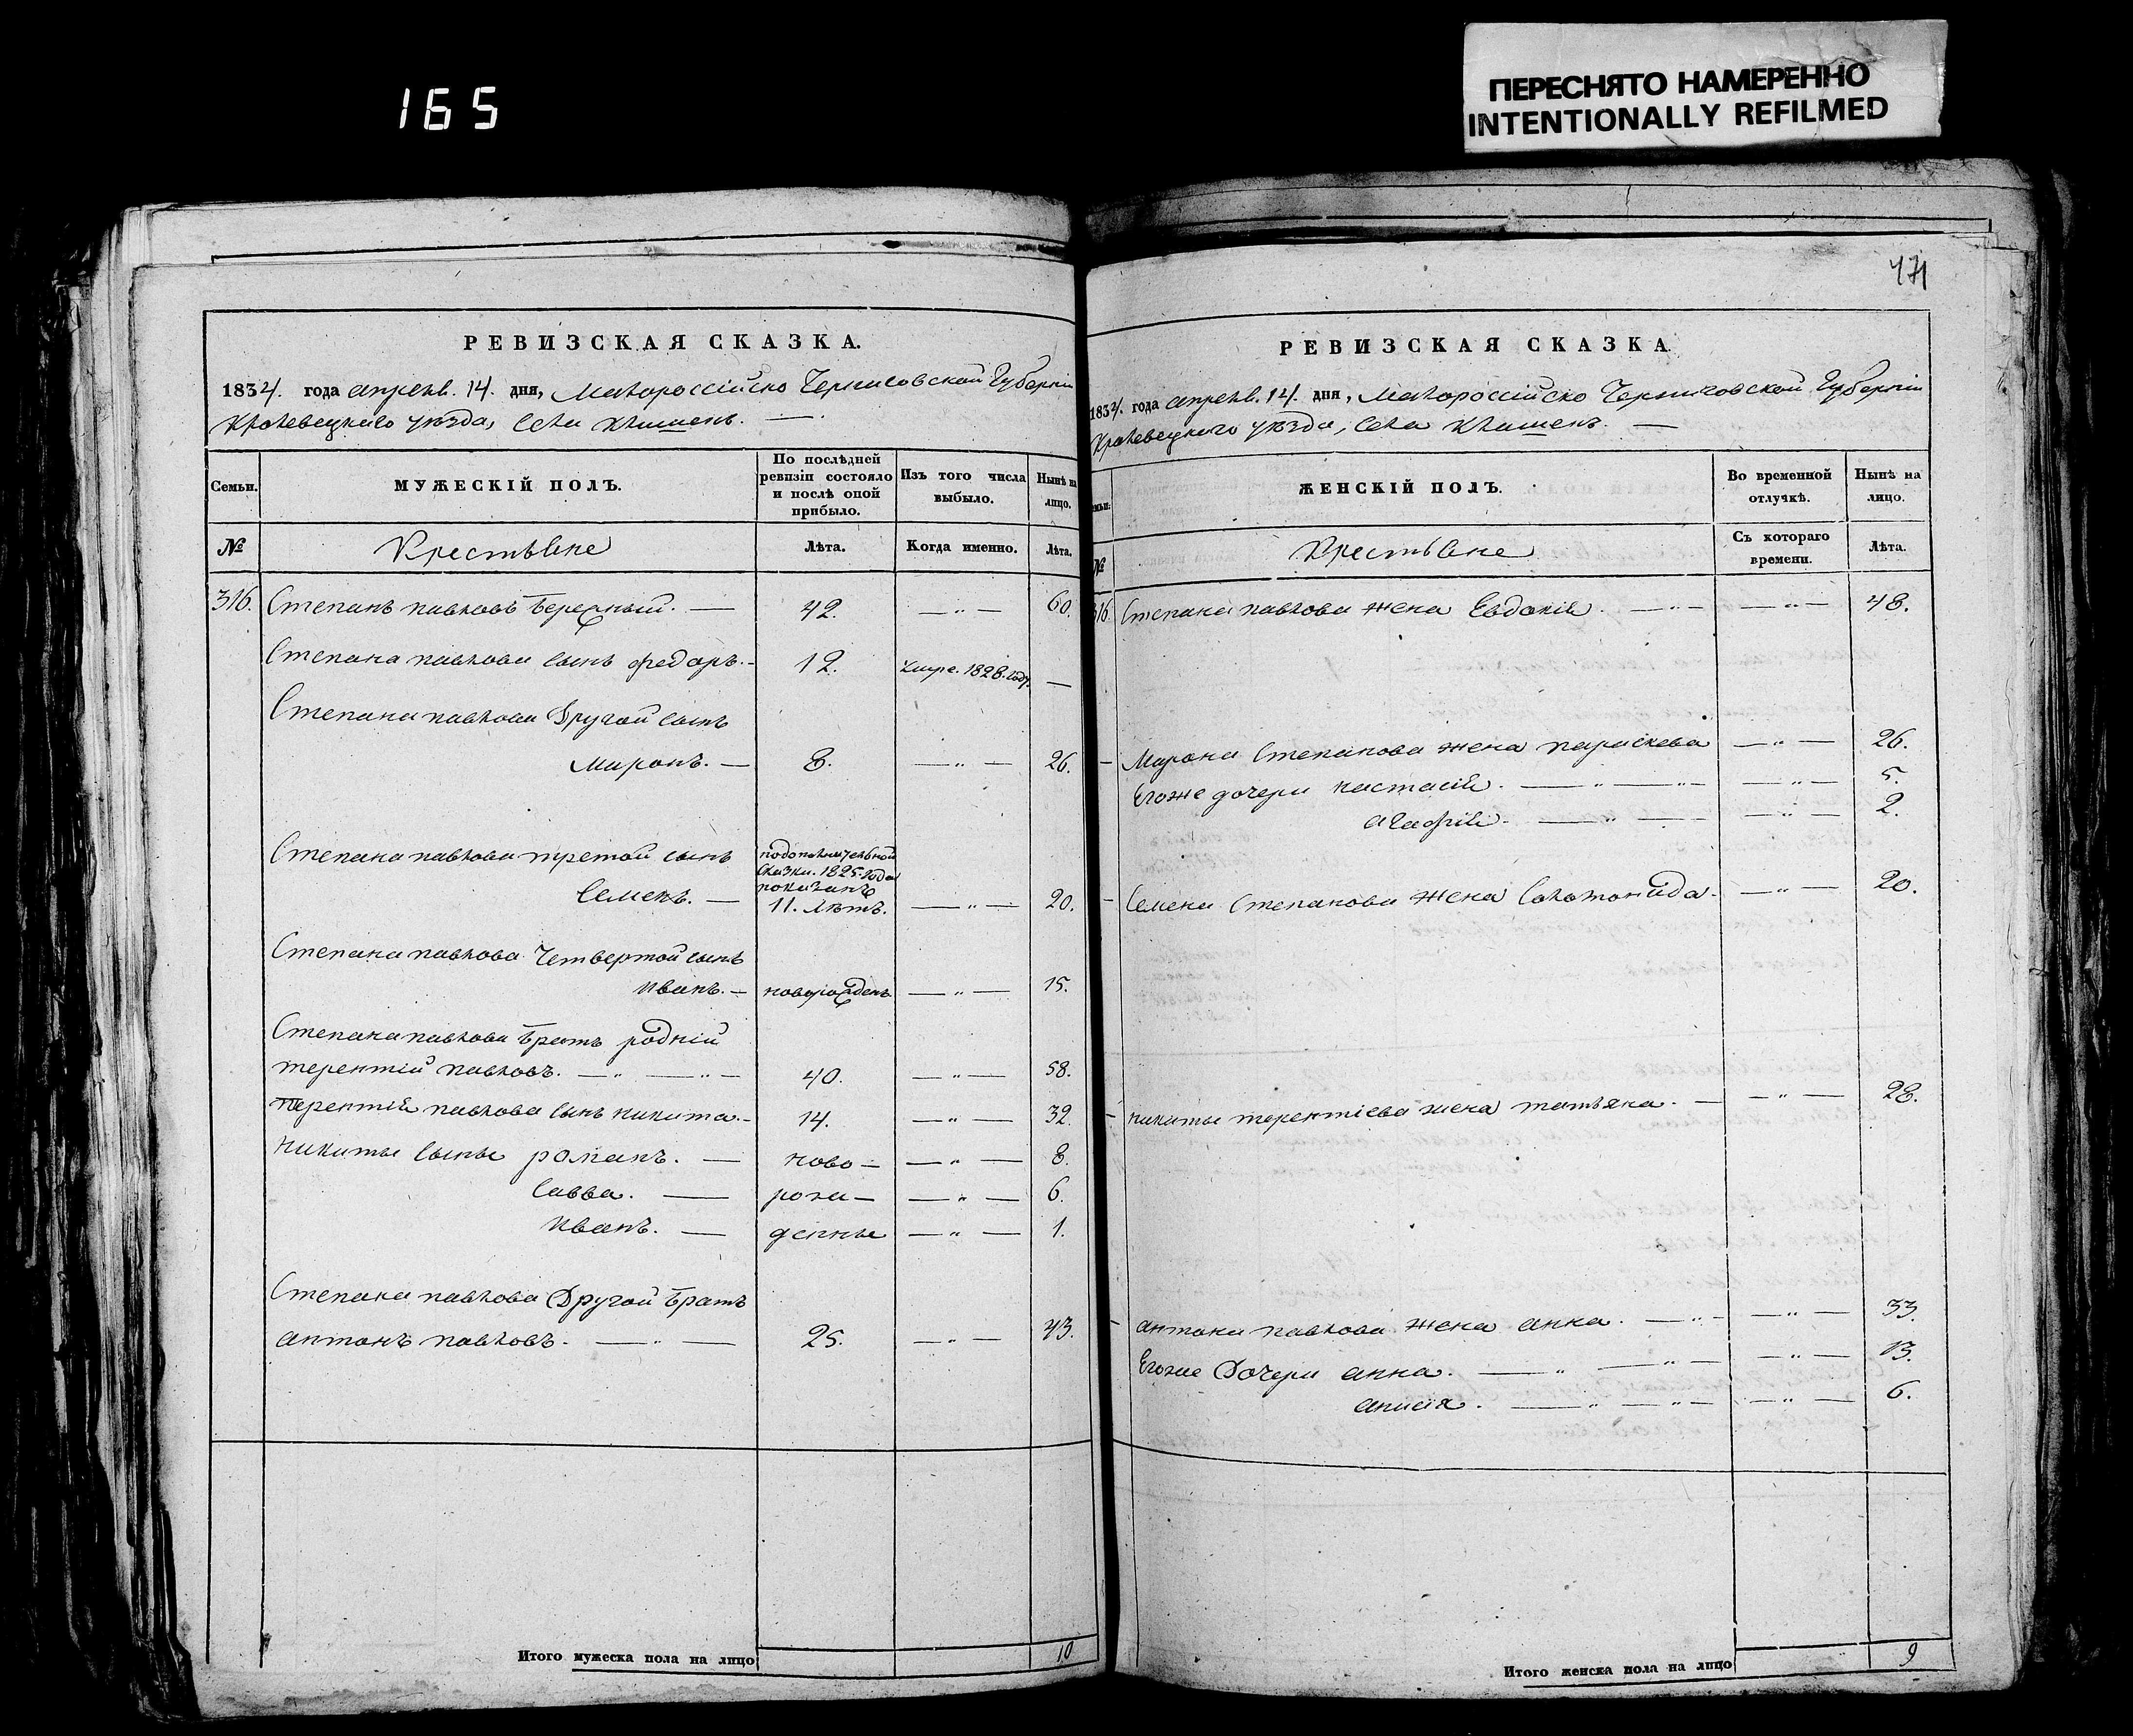 165
ПЕРЕСНЯТО НАМЕРЕННО
INTENTIONALLY REFILMED
РЕВИЗСКАЯ СКАЗКА.
1834. года апреля. 14. дня, Малороссійско Черниговской Губерніи
Кролевецкаго уѣзда, села Клишень.
Семьи.
МУЖЕСКІЙ ПОЛЪ.
По послѣдней ревизіи состояло и послѣ оной прибыло.
Изъ того числа выбыло.
Нынѣ на лицо.
№
Крестьяне
Лѣта.
Когда именно.
Лѣта.
316. Степанъ павловъ Бережный. — 42. — „ — 60.
Степана павлова сынъ федоръ. — 12. умре. 1828. году. —
Степана павлова Другой сынъ
Миронъ. — 8. — „ — 26.
Степана павлова третой сынъ
подополнительной
сказки. 1825. года
показанъ
Семенъ. — 11. лѣтъ. — „ — 20.
Степана павлова Четвертой сынъ
иванъ. — новорожденъ — „ — 15.
Степана павлова братъ родній
терентій павловъ. — „ — „ — 40. — „ — 58.
терентія павлова сынъ никита. — 14. — „ — 32.
никиты сыны романъ. — ново — — „ — 8.
Савва. — рож — — „ — 6.
иванъ. — денны — „ — 1.
Степана павлова Другой братъ
антонъ павловъ. — „ — 25. — „ — 43.
Итого мужеска пола на лицо 10
471
РЕВИЗСКАЯ СКАЗКА
1834. года апреля. 14. дня, Малороссійско Черниговской Губерніи
Кролевецкаго уѣзда, села Клишень. —
ЖЕНСКІЙ ПОЛЪ.
Во временной отлучкѣ.
Нынѣ на лицо.
№
Крестьяне
Съ котораго времени.
Лѣта.
316. Степана павлова жена Евдокія. — „ — — „ — 48.
— Мирона Степанова жена параскева — „ — 26.
Егоже дочери настасія. — „ — „ — — „ — 5.
агафія. — „ — — „ — 2.
— Семена Степанова жена Соломонида. — „ — 20.
— никиты терентіева жена татьяна. — — „ — 28.
— антона павлова жена анна. — „ — — „ — 33.
Егоже Дочери анна. — „ — „ — — „ — 13.
анисія. — „ — „ — — „ — 6.
Итого женска пола на лицо 9